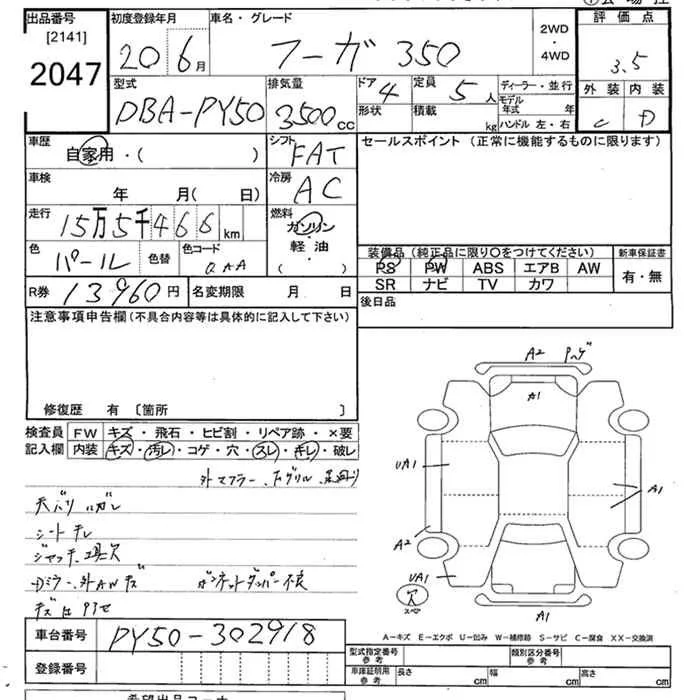 出品番号
[2141]
2047
初度登録年月
20 6月
車名・グレード
フーガ 350
2WD
・
4WD
評価点
3.5
外装 内装
C D
型式
DBA-PY50
排気量
3500cc
ドア 4
形状
定員 5人
積載 kg
ディーラー・並行
モデル年式 年
ハンドル 左・右
車歴
自家用・( )
シフト
FAT
セールスポイント (正常に機能するものに限ります)
車検
年 月( 日)
冷房
AC
走行
15万5千466km
燃料
ガソリン
・
軽油
・
( )
色
パール
色替
色コード
QAA
装備品 (純正品に限り〇をつけてください)
PS PW ABS エアB AW
SR ナビ TV カワ
新車保証書
有・無
R券 13960円
名変期限 月 日
後日品
注意事項申告欄 (不具合内容等は具体的に記入して下さい)
修復歴 有 〔箇所 〕
検査員記入欄
FW キズ・飛石・ヒビ割・リペア跡・×要
内装 キズ・汚レ・コゲ・穴・スレ・キレ・破レ
外マフラー、Fグリル、足回り
天バリ ハガレ
シートキレ
ジャッキ、工具欠
Dミラー、外AWキズ ボンネットダンパー不良
A2
A1
UA1
A1
A2
UA1
穴
A1
A-キズ E-エクボ U-凹み W-補修跡 S-サビ C-腐食 XX-交換済
車台番号 PY50-302918
登録番号
型式指定番号
参考
類別区分番号
参考
車庫証明用
参考
長さ cm
幅 cm
高さ cm